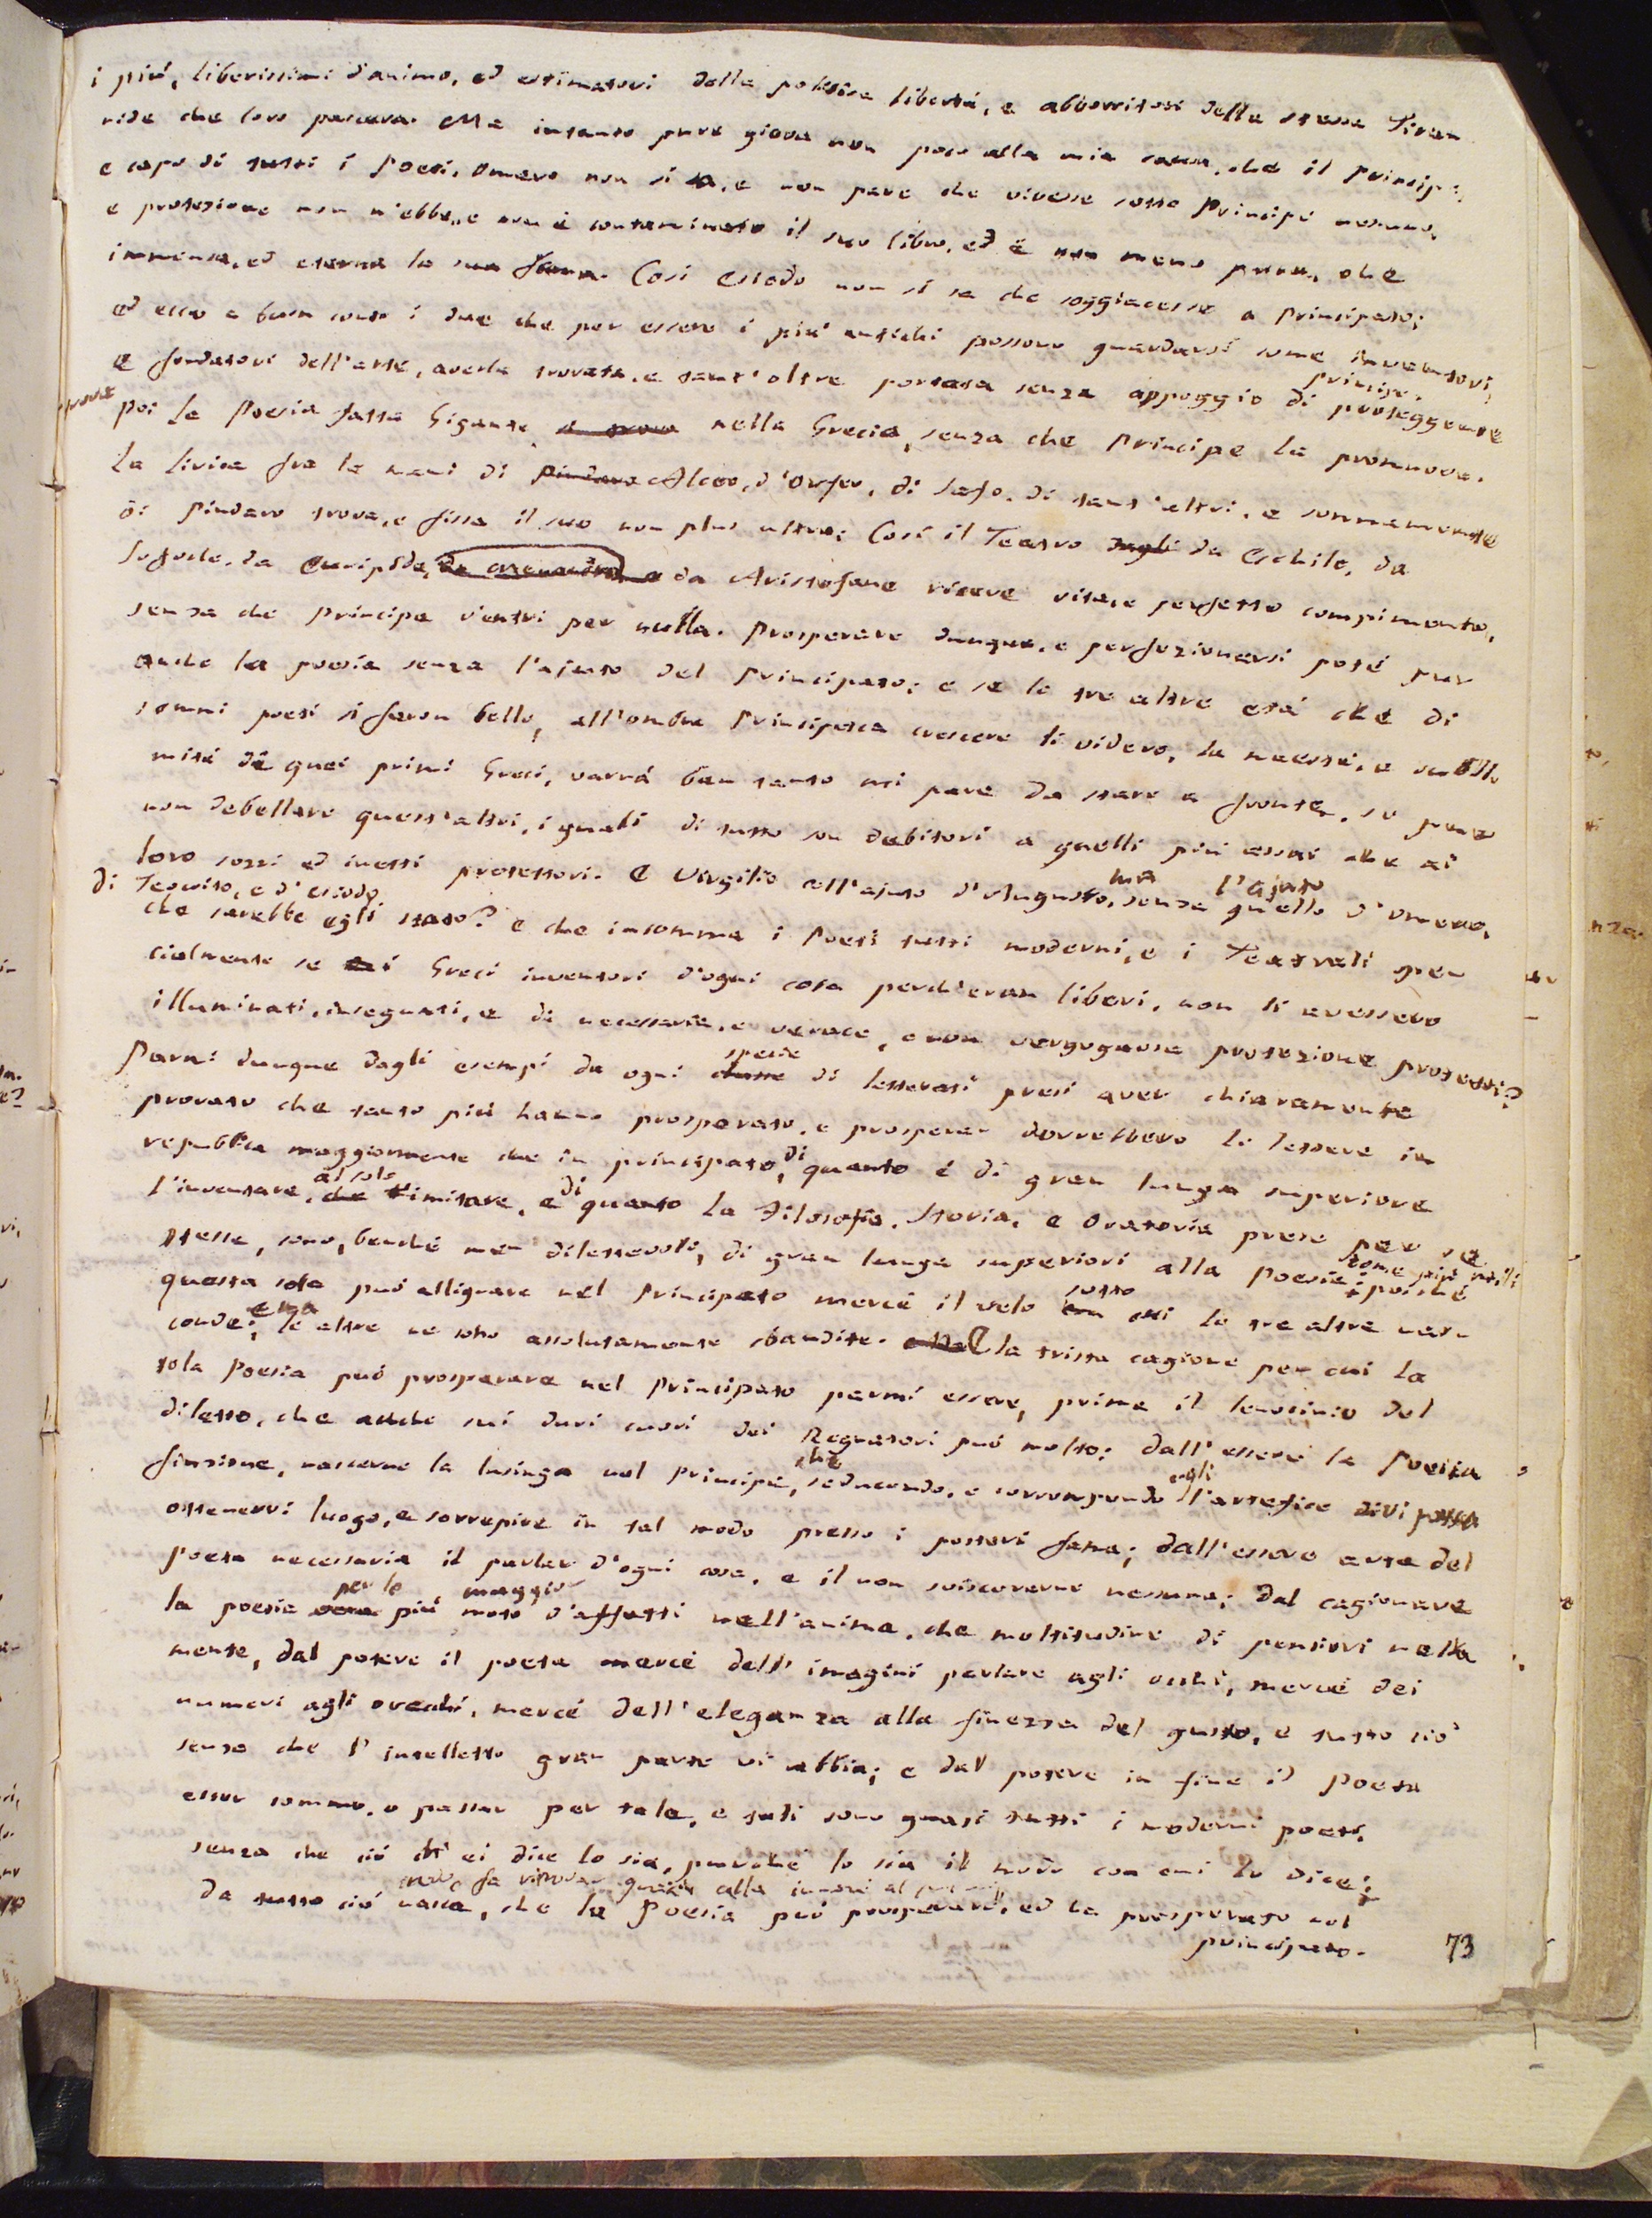 i più, liberissimi d'animo, ed estimatori della politica libertà, e abborritori della stessa Tiran
nide che loro pasceva. Ma intanto pure giova non poco alla mia causa, che il principe,
e capo di tutti i Poeti, Omero non si sa, e non pare che vivesse sotto Principe nessuno,
e protezione non n'ebbe, e non è contaminato il suo libro, ed è non meno pura, che
immensa, ed eterna la sua fama. Così Esiodo non si sa che soggiacesse a Principato;
ed ecco a buon conto i due che per essere i più antichi possono guardarsi come inventori,
principe.
e fondatori dell'arte, averla trovata, e tant'oltre portata senza appoggio di proteggente
poi la Poesia fatta Gigante nella Grecia, senza che Principe la promuova.
La lirica fra le mani di Pindaro Alceo, d'Orfeo, di Safo, di tant'altri, e sommamente
di Pindaro trova, e fissa il suo non plus ultra: Così il Teatro dagli da Eschilo, da
Sofocle, da Euripide, da Menandro e da Aristofane riceve vita, e perfetto compimento,
senza che Principe v'entri per nulla. Prosperare dunque, e perfezionarsi poté pur
anche la poesia senza l'ajuto del Principato; e se le tre altre età che di
sommi poeti si feron belle, all'ombra Principesca crescere li videro, la maestà, e subli
mità di quei primi Greci, varrà ben tanto mi pare da stare a fronte, se pure
non debellare quest'altri, i quali di tutto son debitori a quelli più assai che ai
loro sozzi ed inetti protettori. E Virgilio coll'ajuto d'Augusto, ma senza quello l'ajuto d'Omero,
di Teocrito, e d'Esiodo
che sarebbe egli stato? e che insomma i Poeti tutti moderni, e i Teatrali spe
cialmente se i Greci inventori d'ogni cosa perch'eran liberi, non li avessero
illuminati, insegnati, e di necessaria, e verace, e non vergognosa protezione protetti?
Parmi dunque dagli esempi da ogni classe specie di letterati presi aver chiaramente
provato che tanto più hanno prosperato, e prosperar dovrebbero le lettere in
republica maggiormente che in principato, di quanto è di gran lunga superiore
l'inventare, che al solo imitare, e di quanto la Filosofia, Storia, e Oratoria prese per se
stesse, sono, benché men dilettevoli, di gran lunga superiori alla Poesia; come più utili poiché
questa sola può allignare nel Principato mercé il velo sotto cui le tre altre nas
conde; le altre ne sono assolutamente sbandite. E la trista cagione per cui la
sola Poesia può prosperare nel Principato parmi essere, prima il lenocinio del
diletto, che anche sui duri cuori dei Regnatori può molto; dall'essere la Poesia
finzione, nascerne la lusinga nel Principe, che seducendo, e corrompendo egli l'artefice di vi possa
ottenervi luogo, e sorrepire in tal modo presso i posteri fama; dall'essere arte del
Poeta necessaria il parlar d'ogni cosa, e il non sviscerarne nessuna; dal cagionare
la poesia per lo più maggior moto d'affetti nell'anima, che moltitudine di pensieri nella
mente, dal potere il poeta mercé dell'imagini parlare agli occhi, mercé dei
numeri agli orecchi, mercé dell'eleganza alla finezza del gusto, e tutto ciò
senza che l'intelletto gran parte vi abbia; e dal potere in fine il Poeta
esser sommo, o passar per tale, e tali sono quasi tutti i moderni poeti,
senza che ciò ch'ei dice lo sia, purché lo sia il modo con cui lo dice;
da tutto ciò nasce, che la Poesia può prosperare, ed ha prosperato nel
principato.
73